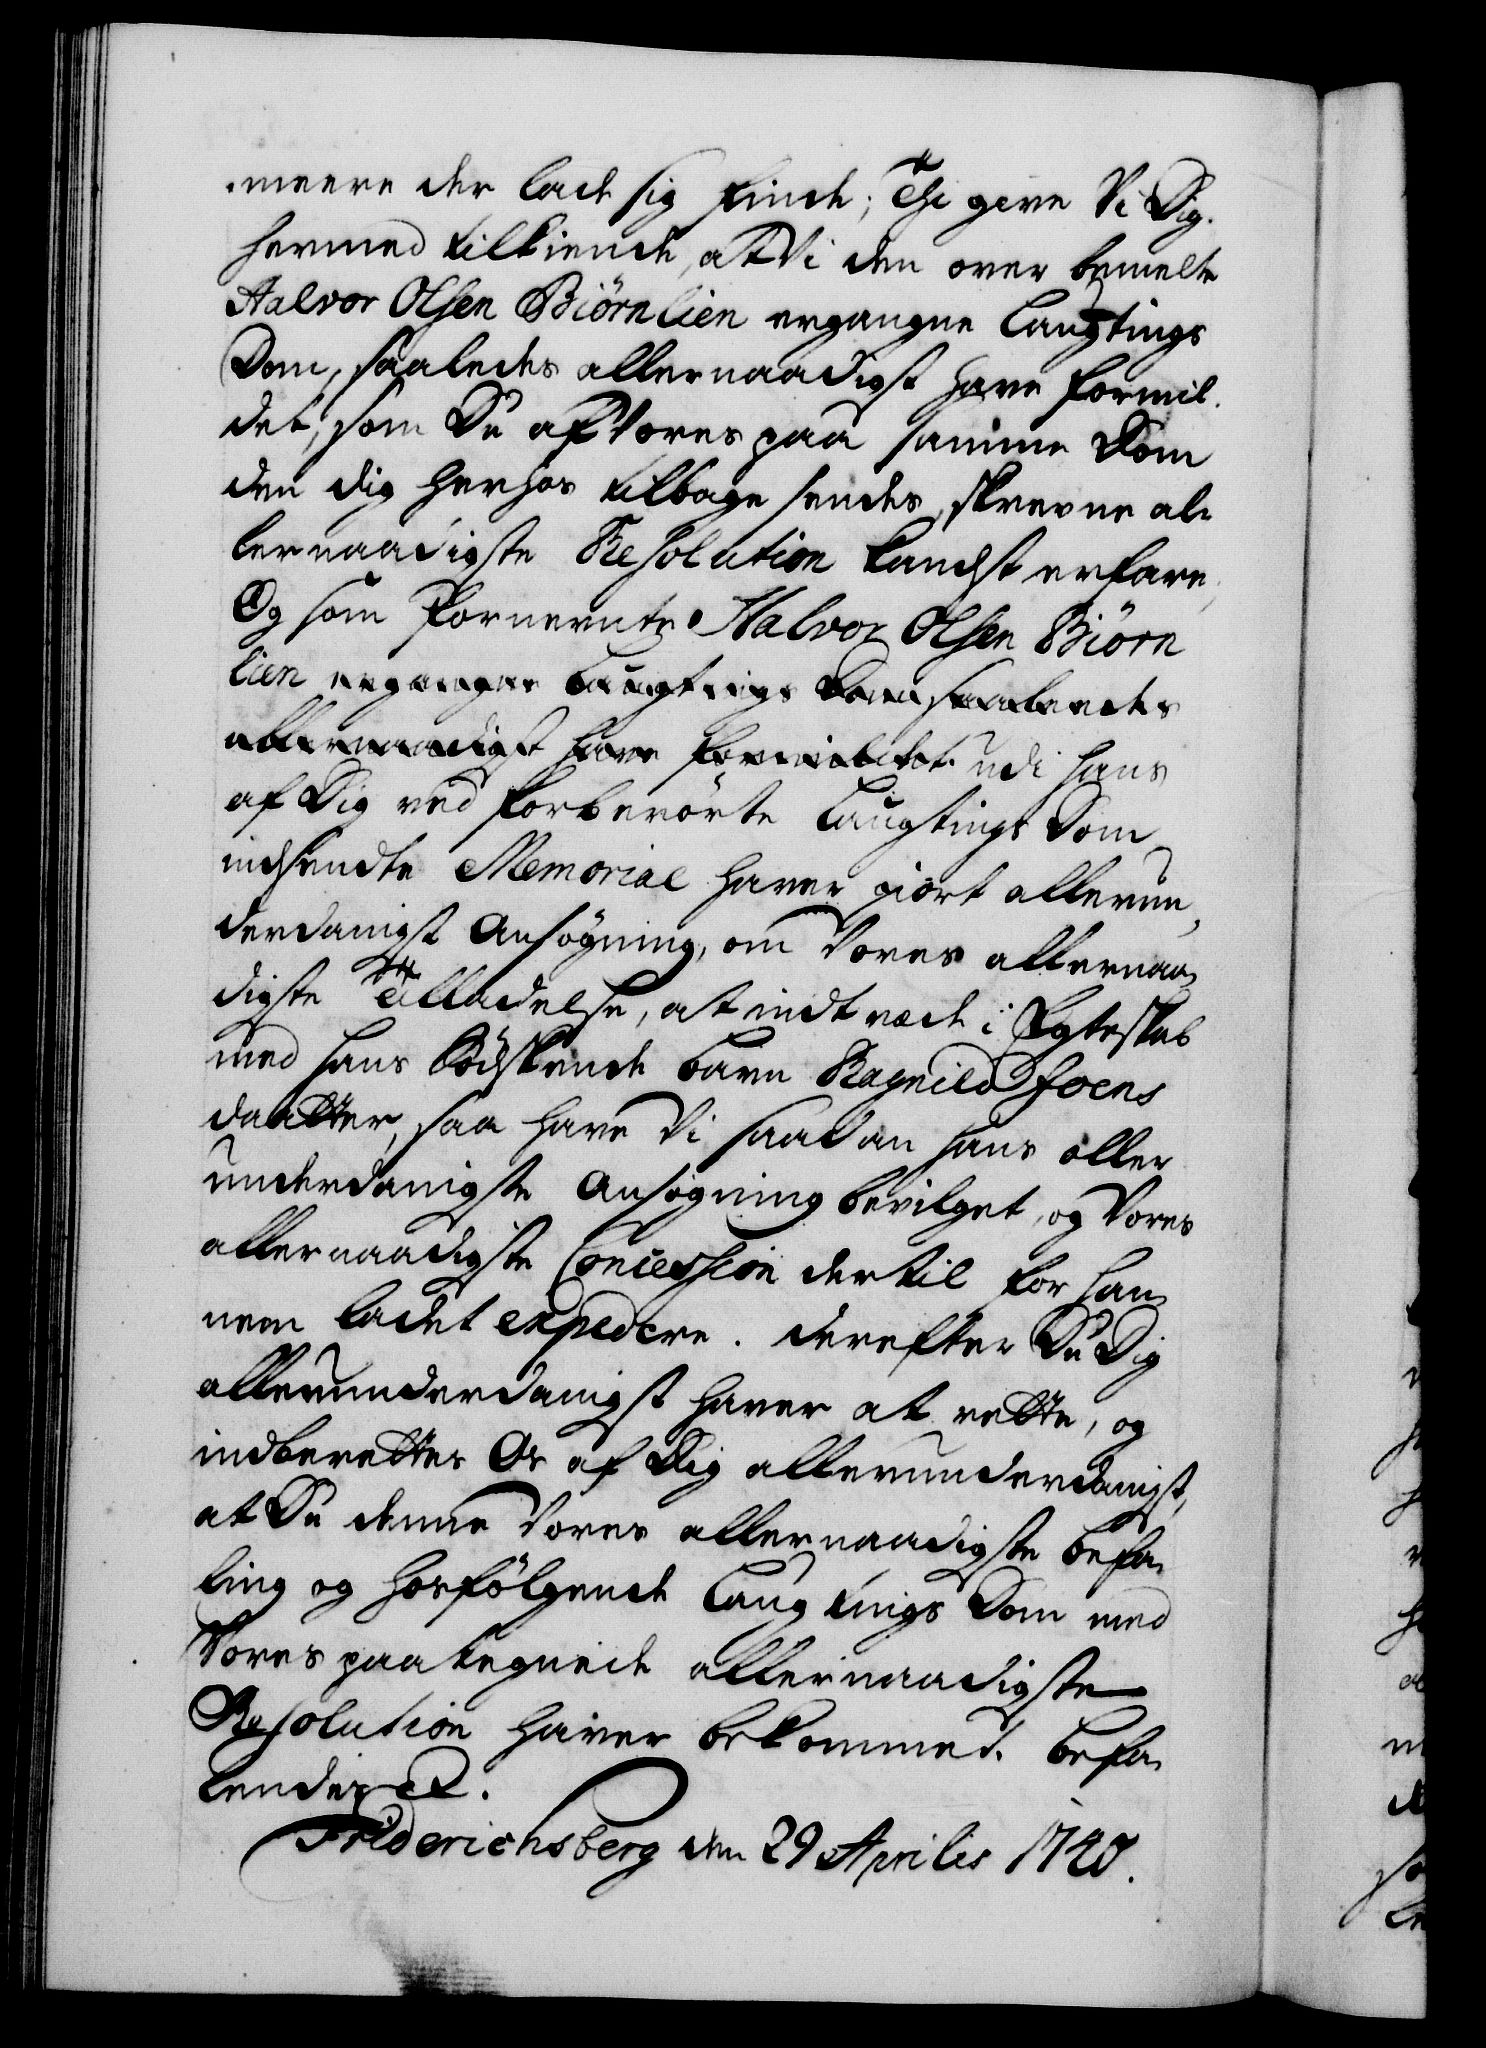 meere der lade sig finde; Thi give Vi Dig
hermed tilkiende, at Vi den over bemelte
Halvor Olsen Biörnlien ergangne Laugtings
Dom, saaledes allernaadigst have formil¬
det, som Du af Vores paa samme Dom
den dig herhos tilbage sendes, skrevne al¬
lernaadigste Resolution kandst erfare,
Og som fornevnte Halvor Olsen Biörn
lien ergangne Laugtings Dom saaledes
allernaadigst have formildet udi hans
af Dig ved forberörte Laugtings Dom
indsendte Memorial haver giort allerun¬
derdanigst Ansögning, om Vores allernaa¬
digste Tilladelse, at indtræde i Egteskab
med hans Södskende barn Ragnild Joens
daatter, saa have Vi saadan hans aller
underdanigste Ansøgning bevilget, og Vores
allernaadigste Concession dertil for han¬
nem ladet expedere. derefter Du Dig
allerunderdanigst haver at rette, og
indberettes Os af Dig allerunderdanigst,
at Du denne Vores allernaadigste befa¬
ling og hosfölgende Laugtings Dom med
Vores paategnede allernaadigste
Resolution haver bekommet. Befa¬
lendes etc.
Friderichsberg den 29 Aprilis 1740.